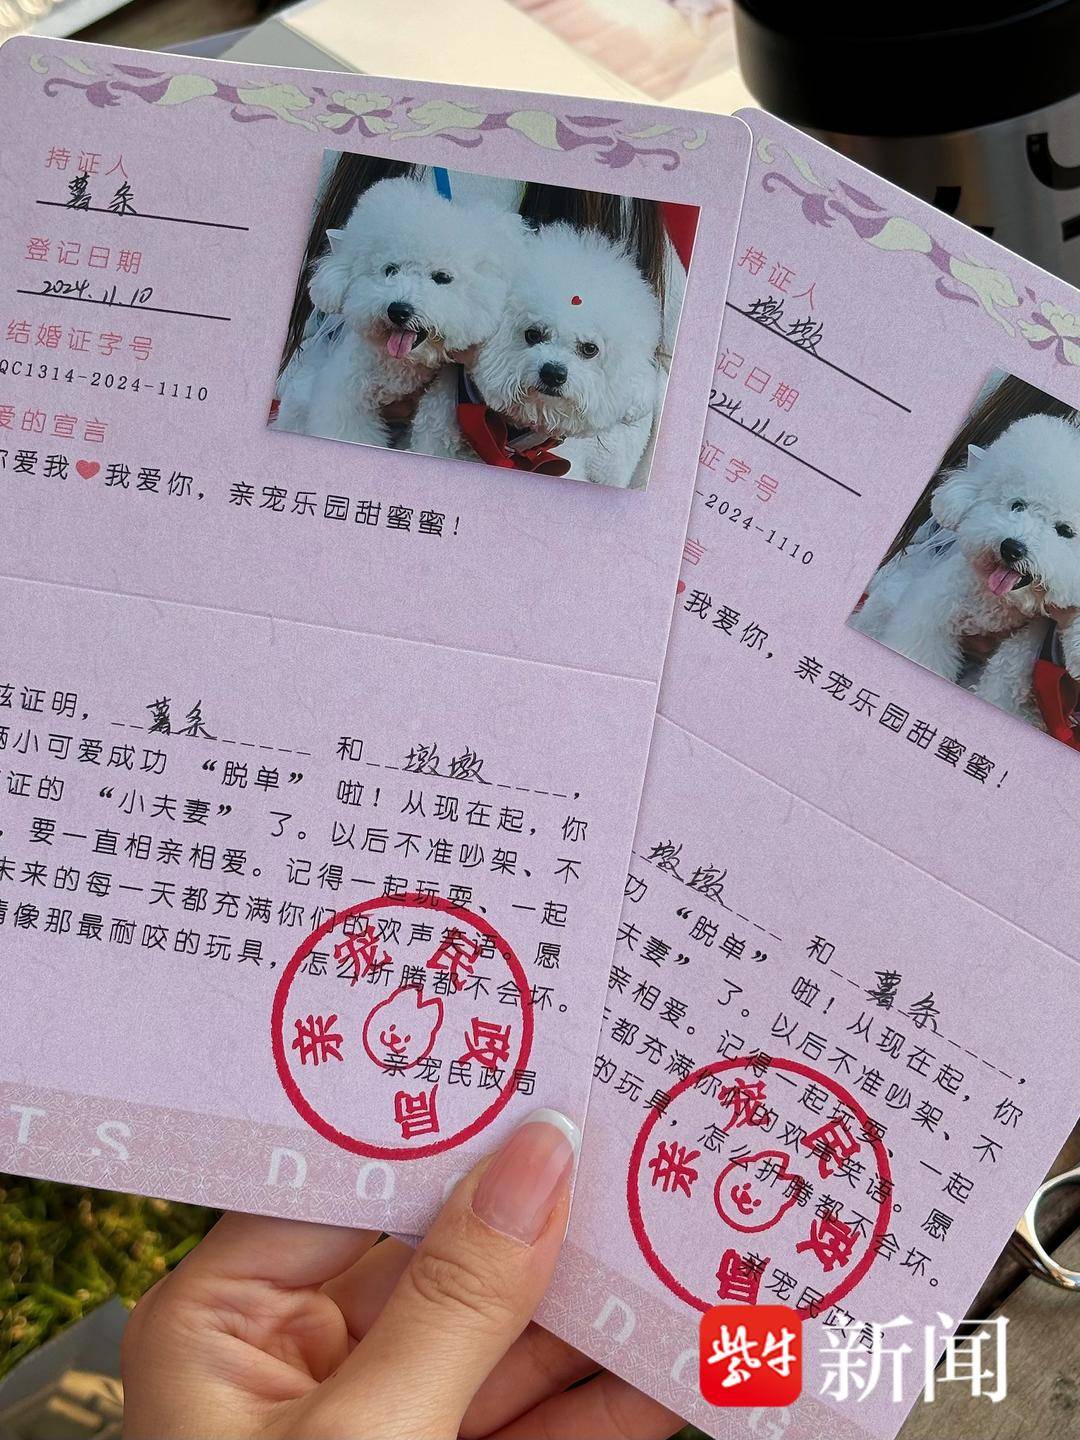 持证人
薯条
登记日期
2024.11.10
结婚证字号
QC1314-2024-1110
爱的宣言
你爱我❤我爱你，亲宠乐园甜蜜蜜！
兹证明，薯条 和 墩墩，
俩小可爱成功“脱单”啦！从现在起，你
证的“小夫妻”了。以后不准吵架、不
，要一直相亲相爱。记得一起玩耍、一起
未来的每一天都充满你们的欢声笑语。愿
情像那最耐咬的玩具，怎么折腾都不会坏。
亲宠民政局
亲宠民政局
TS DOG
持证人
墩墩
记日期
024.11.10
证字号
-2024-1110
言
❤我爱你，亲宠乐园甜蜜蜜！
墩墩 和 薯条，
功“脱单”啦！从现在起，你
夫妻”了。以后不准吵架、不
亲相爱。记得一起玩耍、一起
都充满你们的欢声笑语。愿
的玩具，怎么折腾都不会坏。
亲宠民政局
亲宠民政局
DOG
紫牛新闻